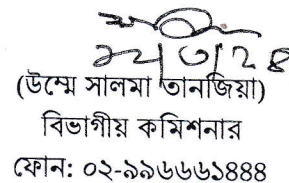 (উম্মে সালমা তানজিয়া)
বিভাগীয় কমিশনার
ফোন: ০২-৯৯৬৬৬১৪৪৪